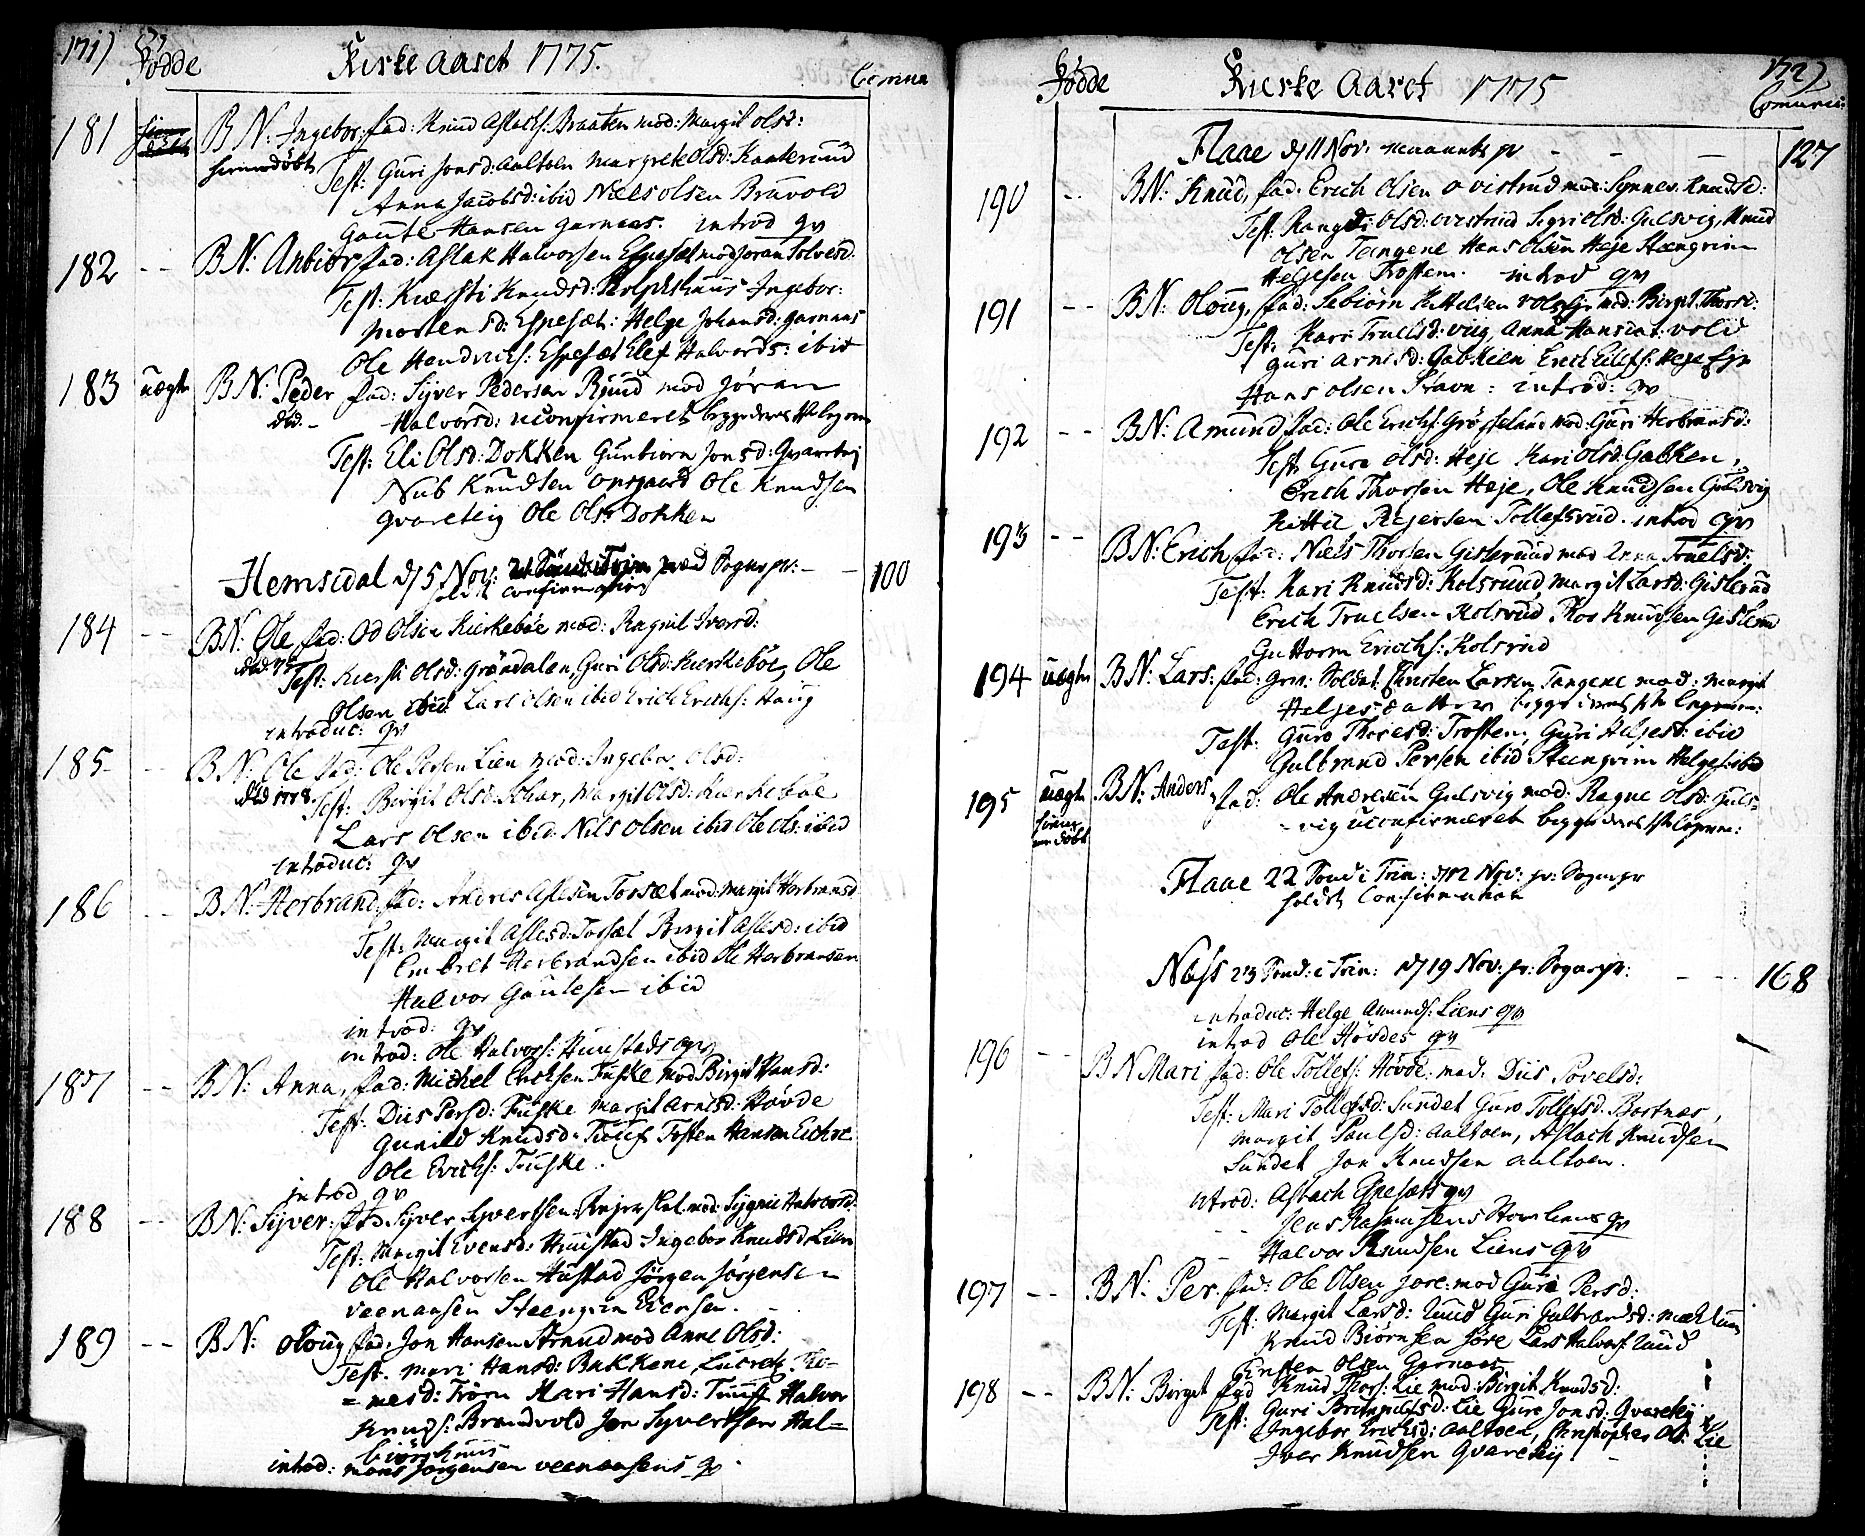 171)
Födde Kirke Aaret 1775. Commu
181 BN: Ingebor: fad: Knud Aslachs: Braaten mod: Margit Olsd:
hiemedöbt Test: Guri Jonsd: Aaltoen Margrete Olsd: Kaaterund
Anna Jacobsd: ibid Niels Olsen Bruvold
Gaute Hansen Garnaas. introd qv
182 -- BN: Anbiör fad: Aslak Halvorsen Espesæt mod Joran Tolvesd:
Test: Kiersti Knudsd: Ingebor:
Mortensd: Espesæt: Helge Johansd: Garnaas
Ole Hendrichs: Espesæt Elef Halvords: ibid
183 uægte BN: Peder fad: Syver Pedersen Rjuud mod Jöran
död. - Halvorsd: uconfirmeret begge deres
Test: Eli Olsd: Dokken Gunbiorn Jonsd: Qvarteig
Nub Knudsen Opsgaard Ole Knudsen
Qvarteig Ole Ols: Dokken
Hemsedal d/5 Nov: præd Sognepr: - - 100
holdt confirmation
184 -- BN: Ole fad: Od Olsen Kirkeböe mod: Ragnil Iversd:
död 75 Test: Kiersti Olsd: Gröndalen, Guri Olsd: Kierkeböe, Ole
Olsen ibid Lars Olsen ibid Erich Erichs: Haug
introduc: qv
185 -- BN: Ole fad: Ole Persen Lien mod: Ingebor Olsd:
död 1778. Test: Birgit Olsd: Margit Olsd: Kierkeböe
Lars Olsen ibid: Nils Olsen ibid Ole Ols: ibid
introduc: qv
186 -- BN: Herbrand fad: Andres Aslesen Torset mod: Margit Herbransd
Test: Margit Aslesd: Torset Birgit Aslesd: ibid
Embret Herbrandsen ibid Ole Herbransen
Halvor Gautesen ibid
introd: qv
introd: Ole Halvors: Huustads qv
187 -- BN: Anna, fad: Michel Ericksen Fuske mod Birgit Hansd:
Test: Diis Persd: Fuske Margit Arnesd: Hövde
Gunild Knudsd: Tuuf Tosten Hansen Eichre
Ole Erichs: Fuske.
introd qv
188 -- BN: Syver: fad Syver Syvertsen: mod: Sygni Halvorsd:
Test: Margit Evensd: Huustad Ingebor Knudsd: Lien
Ole Halvorsen Hustad Jörgen Jörgensen
Veenaasen Steengrim Evensen. -
189 -- BN: Oloug fad: Jon Hansen Strand mod Anne Olsd:
Test. Mari Hansd: Bakkene, Lucretz Tho-
= mesd: Trom Mari Hansd: Tuuff Halvor
Knuds: Brandvold Jon Syvertsen Hal-
biörshuus
introd: Mons Jorgensen Veenaasens qv
Födde Kierke Aaret 1775 172)
Comunic:
Flaae d/11 Nov: - - - 127
190 -- BN: Knud, fad. Erich Olsen Ovistrud mod: Synnev. Knudsd:
Test: Rangdi: Olsd: Ovestrud Sigri Olsd: Gulsvig, Knud
Olsen Tangene Hans Olsen Heje Stengrim
Helgesen Trostem. introd qv
191 -- BN: Oloug, fad: Sebiörn Kittelsen mod: Birgit Thorsd:
Test: Kari Truelsd: Anna Hansdat: Vold
Guri Arnesd: Gabkien Erich Eilefs: Heje
Hans Olsen Stavn: introd: qv
192 -- BN: Amund fad: Ole Erichs: Grösseland mod: Guri Herbransd:
Test: Guro Olsd: Heje Kari Olsd: Gabken,
Erich Thorsen Heje, Ole Knudsen Gulsvig
Kittil Rejersen Tollefsrud. introd qv
193 -- BN: Erich fad: Niels Thorsen Gislerud mod Anna Truelsd:
Test: Kari Knudsd: Kolsrund, Margit Larsd: Gislerud
Erich Truelsen Kolsrud Thor Knudsen Gislerud
Guttorm Erichs: Kolsrud
194 uægte BN: Lars: fad: Gev: Soldat Christen Larsen Tangene mod: Margit
Helgesdatter begge deres
Test: Guro Thoresd: Trostem, Guri Helgesd: ibid
Gulbrand Persen ibid Steengrim Helges: ibid
195 uægte BN: Anders fad: Ole Andersen Gulsvig mod: Ragne Olsd: Guls-
hiemedöbt - vig uconfirmeret begge deres
Flaae 22 Sond i Trin: d/12 Nov: pr: Sognepr
holdt Confirmation
Næss 23 Sond: i Trin: d/19 Nov: pr: Sognepr: - - 168
introduc: Helge Amunds: Liens qv
introd Ole Hövdes qv
196 -- BN Mari fad: Ole Tollefs: Hövde: mod. Diis Povelsd:
Test: Mari Tollefsd: Sundet Guro Tollefsd. Bortnes,
Margit Paulsd: Aaltoen, Aslach Knudsen
Sundet Jon Knudsen Aaltoen.
introd: Aslach Espesæts qv
Jens Rasmusens qv
Halvor Knudsen Liens qv
197 -- BN: Per fad: Ole Olsen Jore: mod Guri Persd:
Test: Margit Larsd: Ruud Guri Gulbrandsd:
Knud Biörnsen Jöre Lars Halvors: Ruud
Olsen Garnaas
198 -- BN: Birget fad Knud Thors: Lie mod: Birgit Knudsd:
Test: Guri Brinjulfsd: Lie Guro Jonsd: Qvarteig
Ingebor Erichsd: Aaltoen, Christopher Ols: Lie
Iver Knudsen Qvarteij